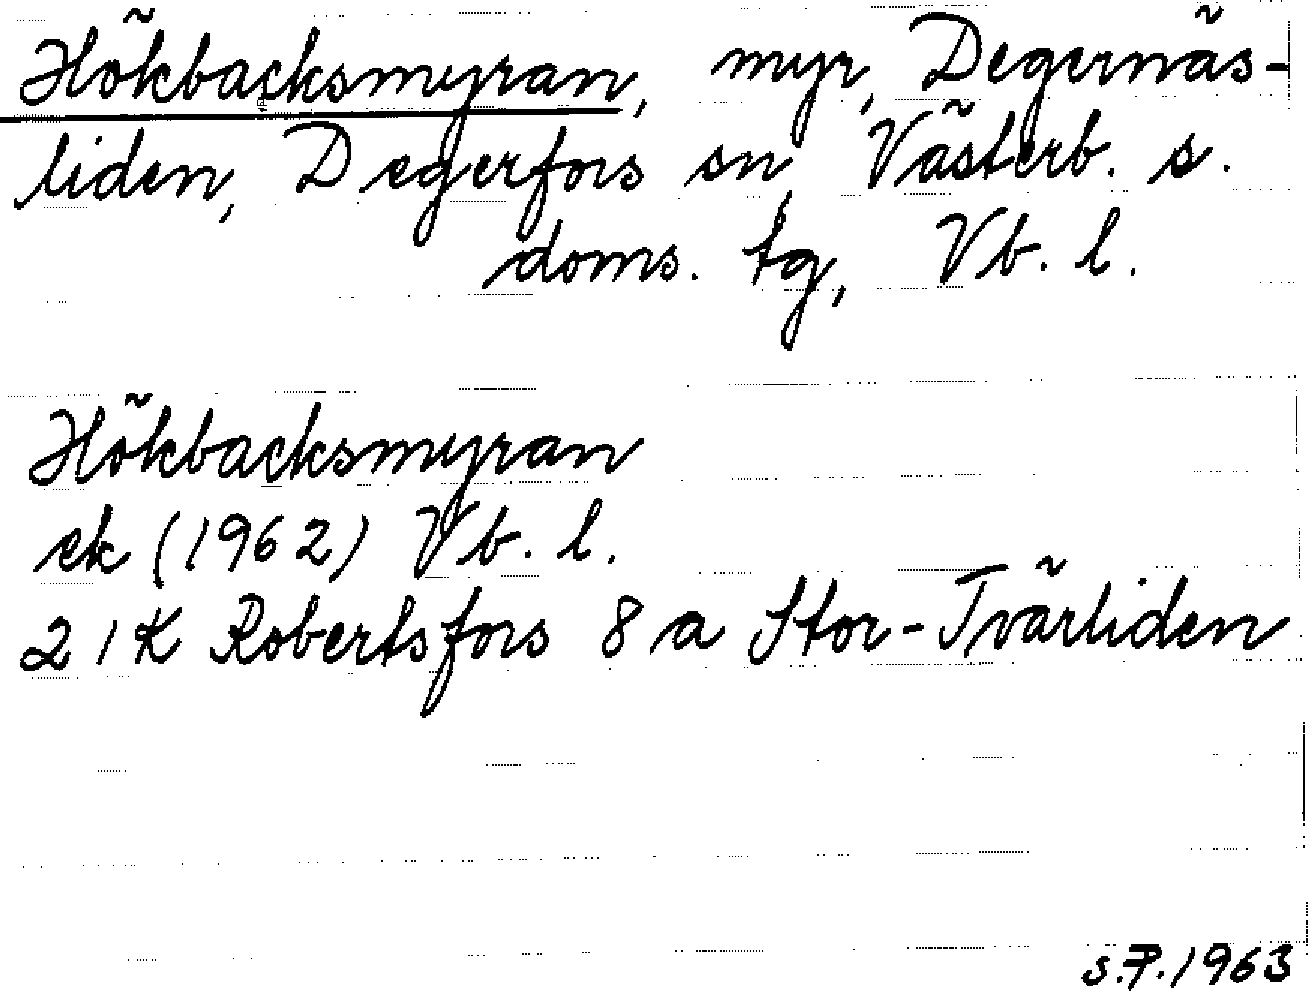 Hökbacksmyran, myr, Degernäs-
liden, Degerfors sn, Västerb. s.
doms. tg, Vb. l.
Hökbacksmyran
ek (1962) Vb. l.
21K Robertsfors 8 a Stor-Tvärliden
S.P. 1963